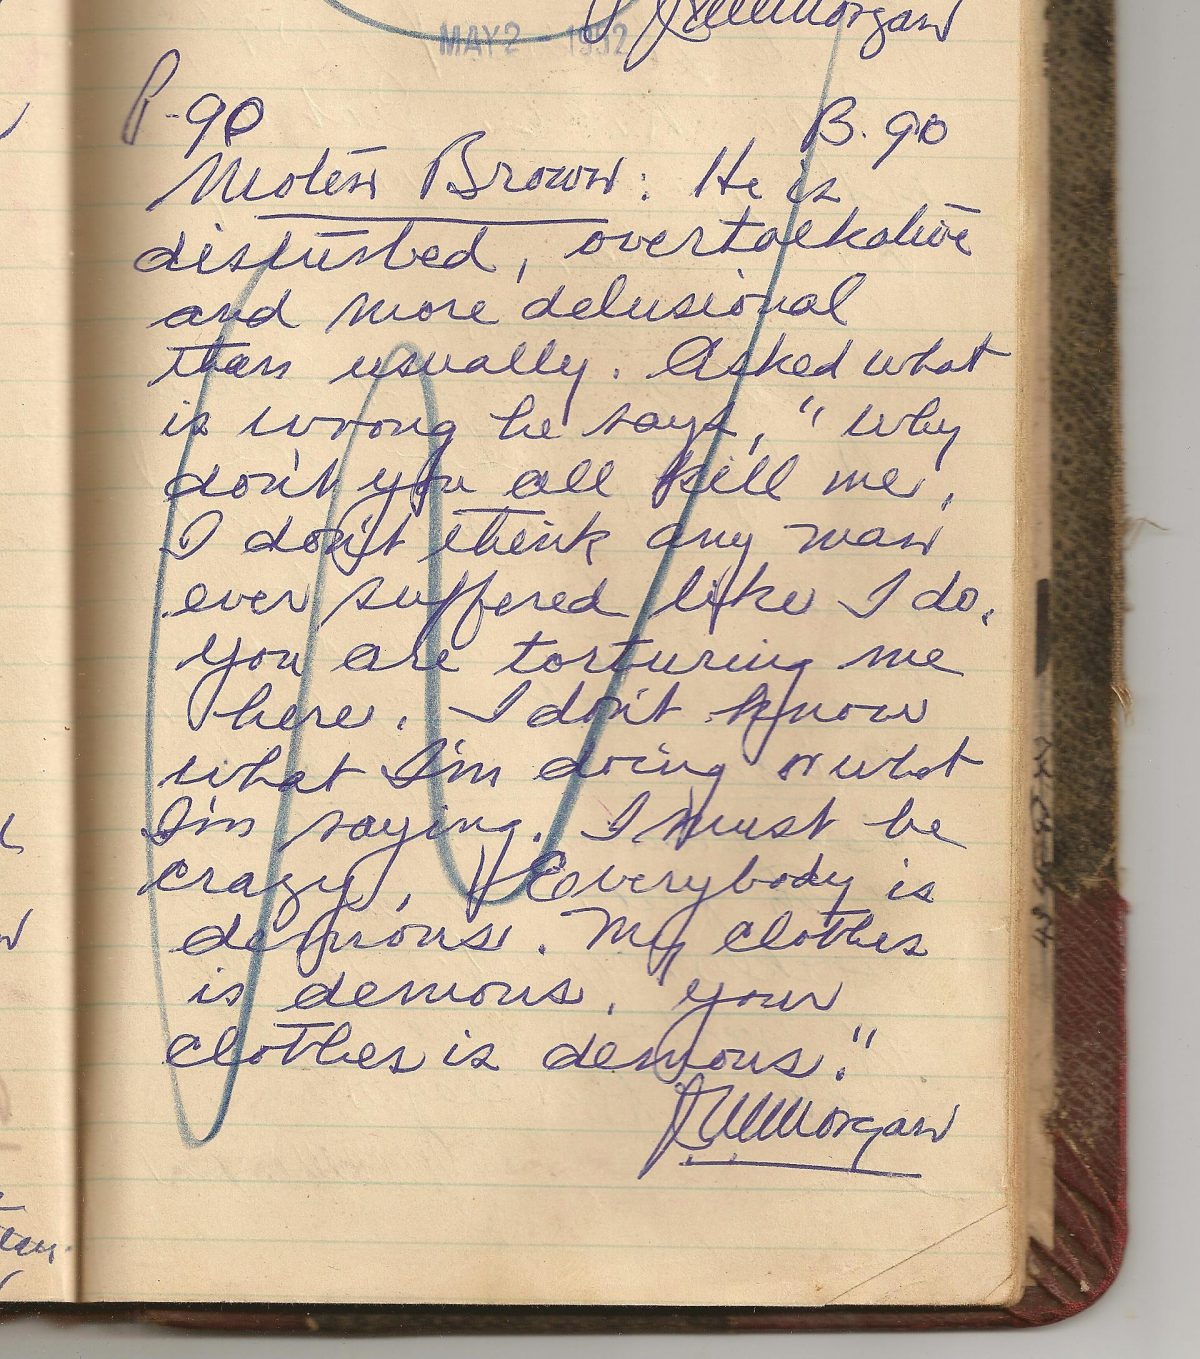 Morgan
MAY 2 - 1952
P-90 B. 90
Moten Brown: He is
disturbed, overtalkative
and more delusional
than usually. Asked what
is wrong he says, "Why
don't you all kill me,
I don't think any man
ever suffered like I do.
You are torturing me
here. I don't know
what I'm doing or what
I'm saying. I must be
crazy. Everybody is
demons. My clothes
is demons, your
clothes is demons."
Morgan